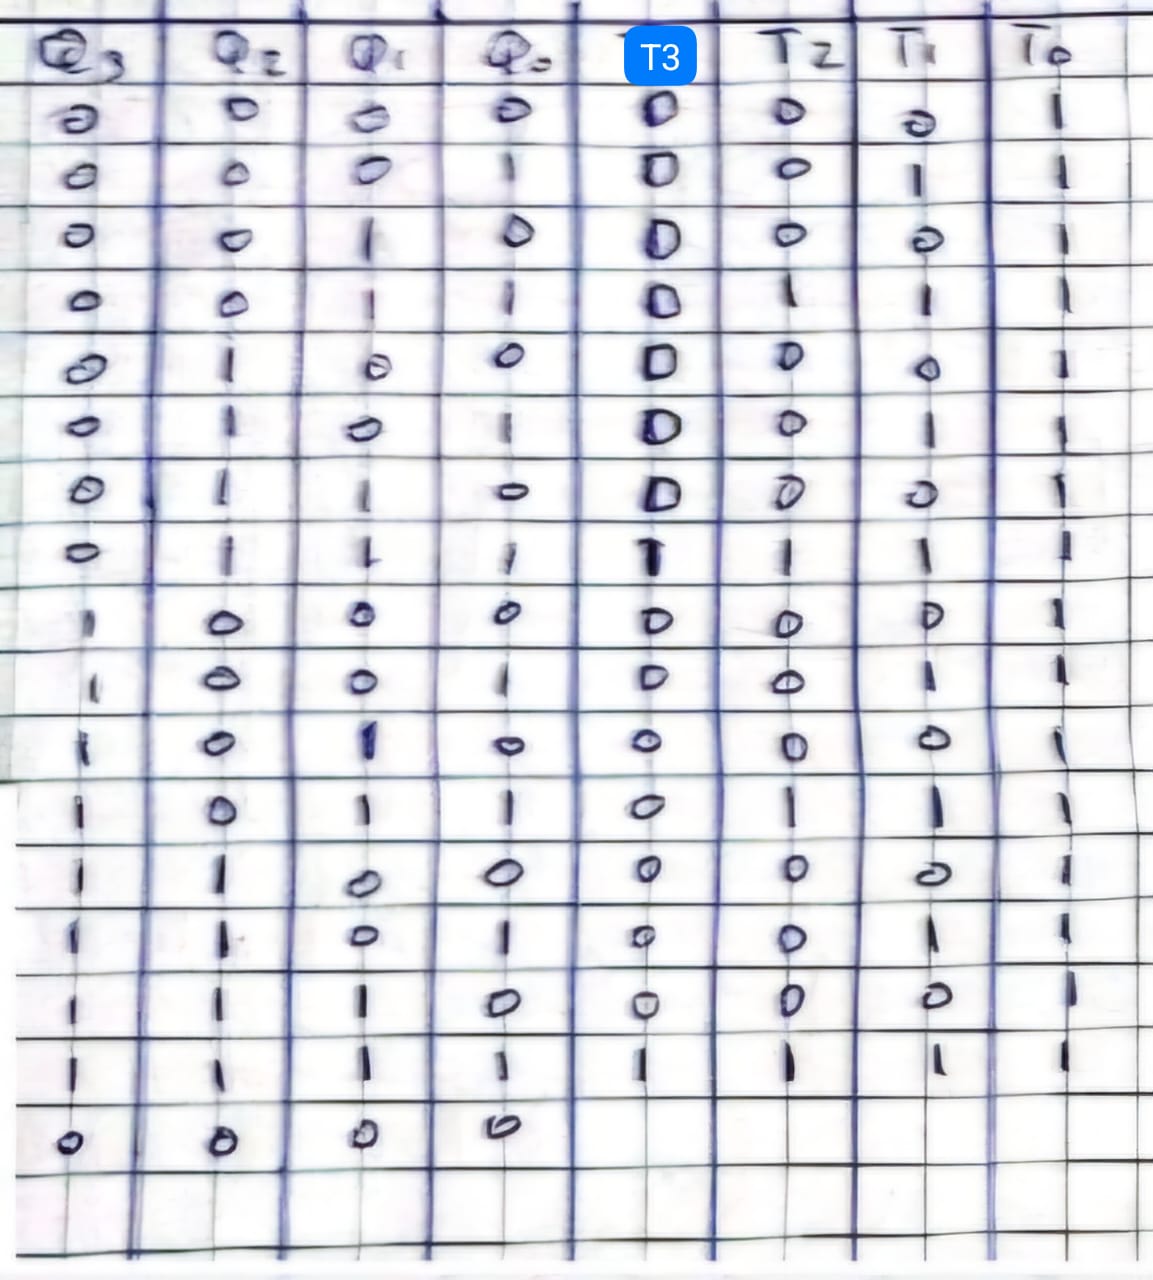 Q3 Q2 Q1 Q0 T3 T2 T1 T0
0 0 0 0 0 0 0 1
0 0 0 1 0 0 1 1
0 0 1 0 0 0 0 1
0 0 1 1 0 1 1 1
0 1 0 0 0 0 0 1
0 1 0 1 0 0 1 1
0 1 1 0 0 0 0 1
0 1 1 1 1 1 1 1
1 0 0 0 0 0 0 1
1 0 0 1 0 0 1 1
1 0 1 0 0 0 0 1
1 0 1 1 0 1 1 1
1 1 0 0 0 0 0 1
1 1 0 1 0 0 1 1
1 1 1 0 0 0 0 1
1 1 1 1 1 1 1 1
0 0 0 0